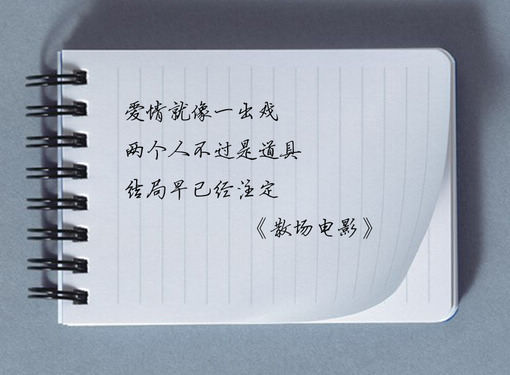 爱情就像一出戏
两个人不过是道具
结局早已经注定
《散场电影》